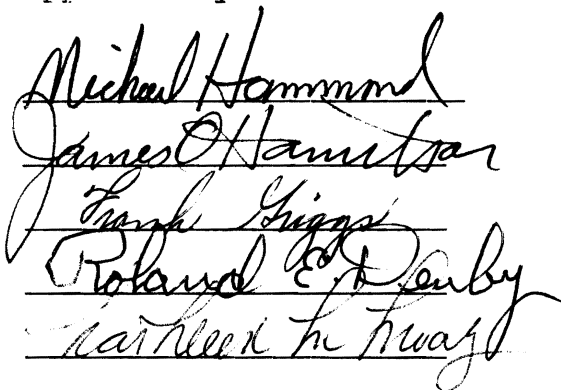 Michael Hammond
James O Hamilton
Frank Griggs
Roland E. Denby
Kathleen M